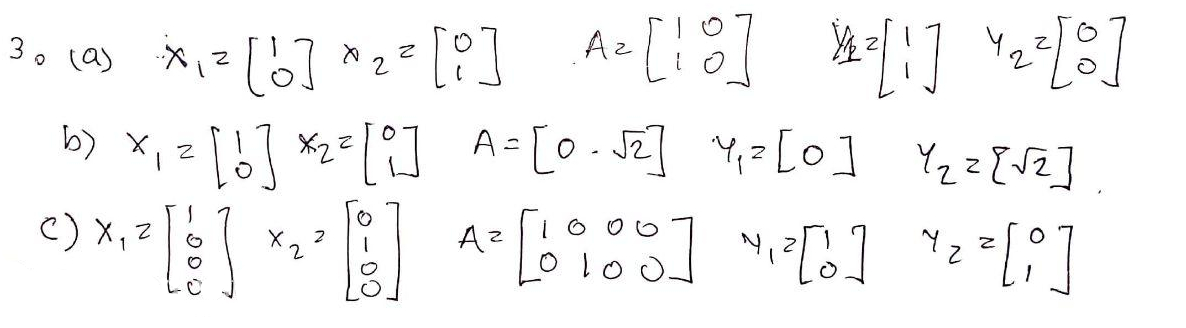 3. (a) x₁ = [1 0] x₂ = [0 1] A = [1 0 1 0] y₁ = [1 1] y₂ = [0 0]
b) x₁ = [1 0] x₂ = [0 1] A = [0 . √2] y₁ = [0] y₂ = [√2]
c) x₁ = [1 0 0 0] x₂ = [0 1 0 0] A = [1 0 0 0 0 1 0 0] y₁ = [1 0] y₂ = [0 1]